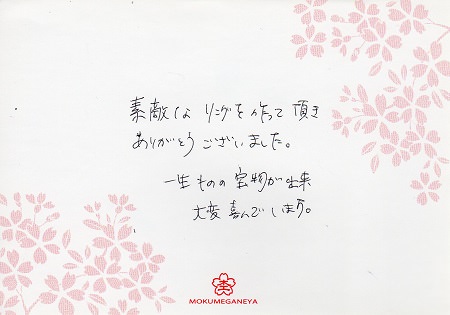 素敵な リングを 作って 頂き
ありがとう ございました。
一生ものの 宝物が出来
大変 喜んでいます。
MOKUMEGANEYA